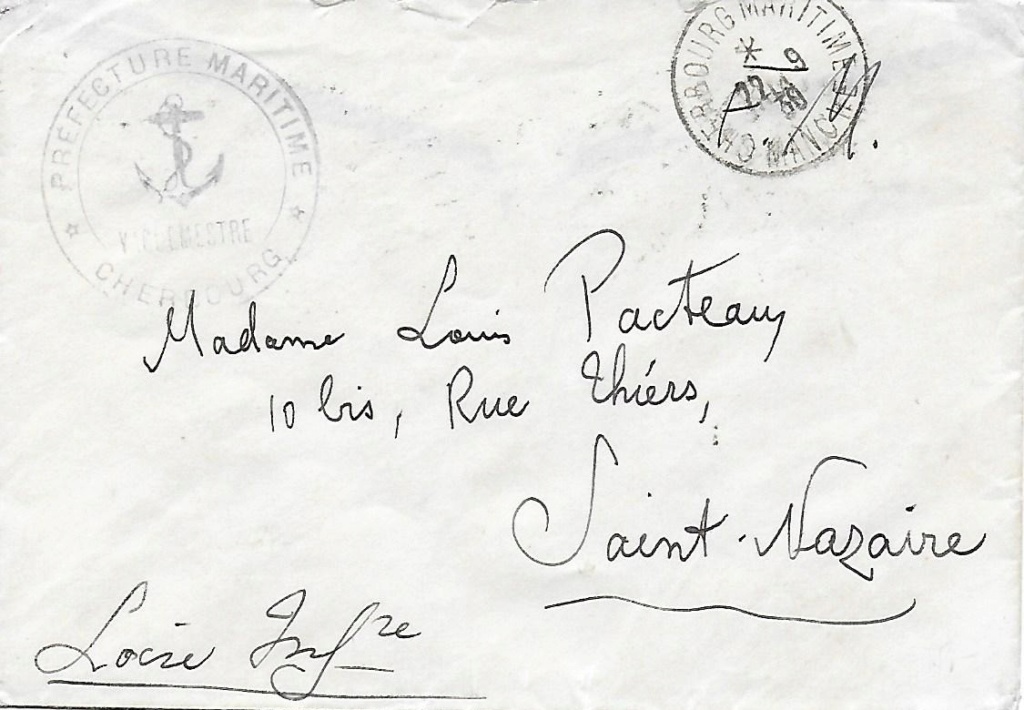 PRÉFECTURE MARITIME
CHERBOURG
CHERBOURG MARITIME
* 9
22
MANCHE
Madame Louis Pacteau
10 bis, Rue Thiérs,
Saint-Nazaire
Loire Infre